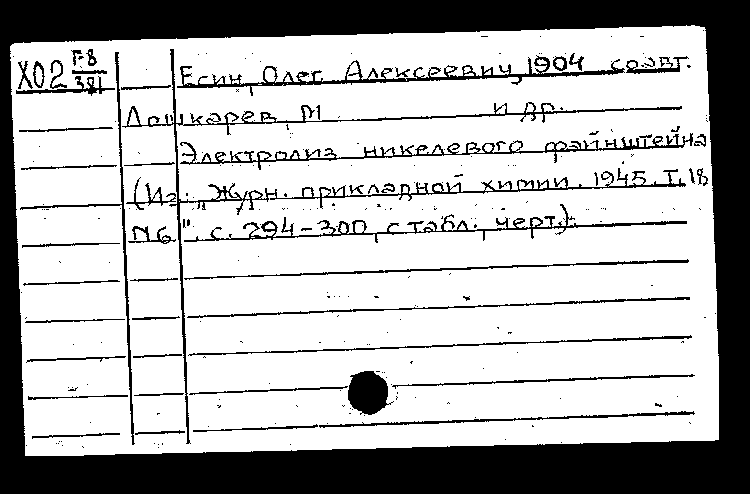 Х02 Г-8/381 Есин, Олег Алексеевич, 1904 соавт.
Лашкарев, М и др.
Электролиз никелевого файнштейна
(Из: „Журн. прикладной химии. 1945. Т. 18
№6". с. 294-300, с табл., черт.).